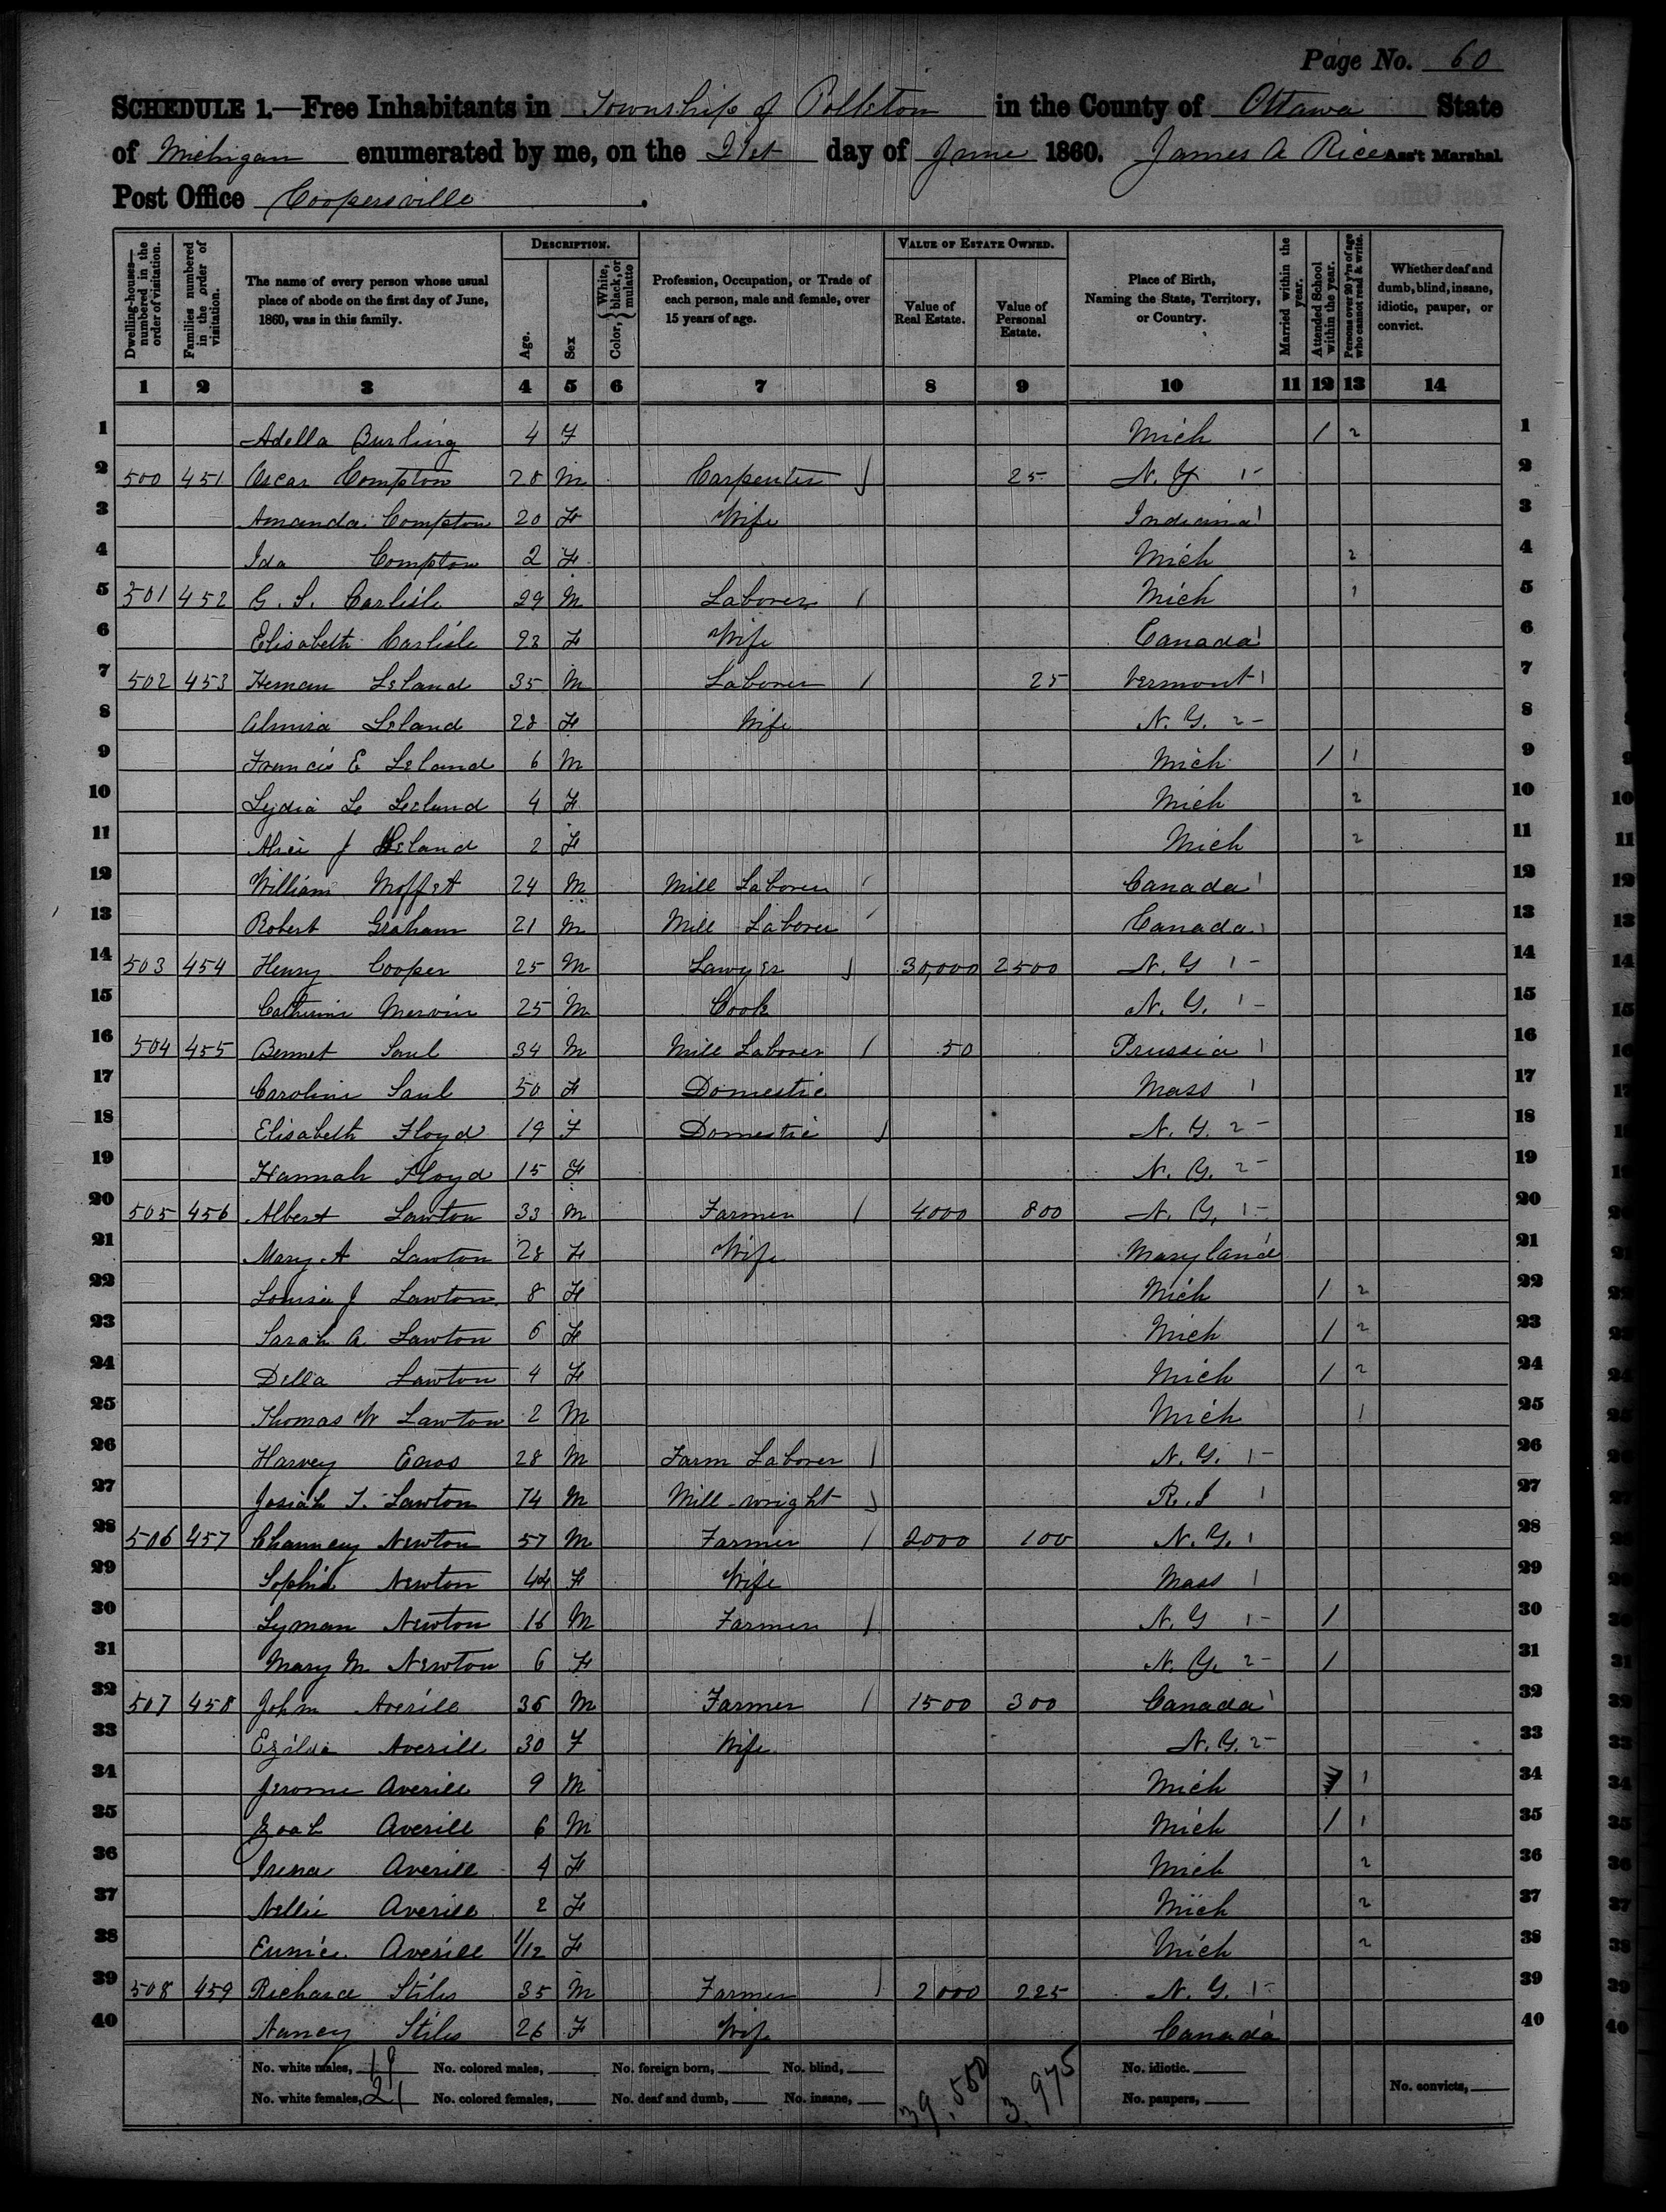 Page No. 60
SCHEDULE 1.—Free Inhabitants in Township of Polkton in the County of Ottawa State
of Michigan enumerated by me, on the 21st day of June 1860. James A Rice Ass't Marshal.
Post Office Coopersville.
Dwelling-houses—numbered in the order of visitation.
Families numbered in the order of visitation.
The name of every person whose usual place of abode on the first day of June, 1860, was in this family.
DESCRIPTION.
Age.
Sex
Color, { White, black, or mulatto
Profession, Occupation, or Trade of each person, male and female, over 15 years of age.
VALUE OF ESTATE OWNED.
Value of Real Estate.
Value of Personal Estate.
Place of Birth, Naming the State, Territory, or Country.
Married within the year.
Attended School within the year.
Persons over 20 y'rs of age who cannot read & write.
Whether deaf and dumb, blind, insane, idiotic, pauper, or convict.
1 2 3 4 5 6 7 8 9 10 11 12 13 14
1 Adella Burling 4 F Mich / 2 1
2 500 451 Oscar Compton 28 M Carpenter 25 N. Y 1- 2
3 Amanda Compton 20 F Wife Indiana 1 3
4 Ida Compton 2 F Mich 2 4
5 501 452 G. S. Carlisle 29 M Laborer / Mich 1 5
6 Elisabeth Carlisle 23 F Wife Canada 1 6
7 502 453 Heman Leland 35 M Laborer / 25 Vermont 1 7
8 Almira Leland 28 F Wife N. Y. 2- 8
9 Francis E Leland 6 M Mich / 1 9
10 Lydia L Leland 4 F Mich 2 10
11 Alice J Leland 2 F Mich 2 11
12 William Moffet 24 M Mill Laborer / Canada 1 12
13 Robert Graham 21 M Mill Laborer / Canada 1 13
14 503 454 Henry Cooper 25 M Lawyer 30,000 2500 N. Y 1- 14
15 Catherine Mervin 25 M Cook N. Y. 1- 15
16 504 455 Bennet Saul 34 M Mill Laborer / 50 Prussia 1 16
17 Caroline Saul 50 F Domestic Mass 1 17
18 Elisabeth Floyd 19 F Domestic N. Y. 2- 18
19 Hannah Floyd 15 F N. Y. 2- 19
20 505 456 Albert Lawton 33 M Farmer / 4000 800 N. Y. 1- 20
21 Mary A Lawton 28 F Wife Maryland 21
22 Louisa J Lawton 8 F Mich / 2 22
23 Sarah A Lawton 6 F Mich / 2 23
24 Della Lawton 4 F Mich / 2 24
25 Thomas W Lawton 2 M Mich 1 25
26 Harvey Enos 28 M Farm Laborer / N. Y. 1- 26
27 Josiah T. Lawton 74 M Mill-wright R. I 1 27
28 506 457 Chauncy Newton 57 M Farmer / 2000 100 N. Y. 1 28
29 Sophia Newton 44 F Wife Mass 1 29
30 Lyman Newton 16 M Farmer / N. Y 1- / 30
31 Mary M Newton 6 F N. Y. 2- / 31
32 507 458 John Averill 36 M Farmer / 1500 300 Canada 1 32
33 Averill 30 F Wife N. Y. 2- 33
34 Jerome Averill 9 M Mich 1 34
35 Averill 6 M Mich / 1 35
36 Irena Averill 4 F Mich 2 36
37 Nellie Averill 2 F Mich 2 37
38 Eunice Averill 1/12 F Mich 2 38
39 508 459 Richard Stiles 35 M Farmer / 2000 225 N. Y. 1- 39
40 Nancy Stiles 26 F Wife Canada 40
No. white males, 19 No. colored males, No. foreign born, No. blind, No. idiotic.
No. white females, 21 No. colored females, No. deaf and dumb, No. insane, 39,550 3,975 No. paupers, No. convicts,